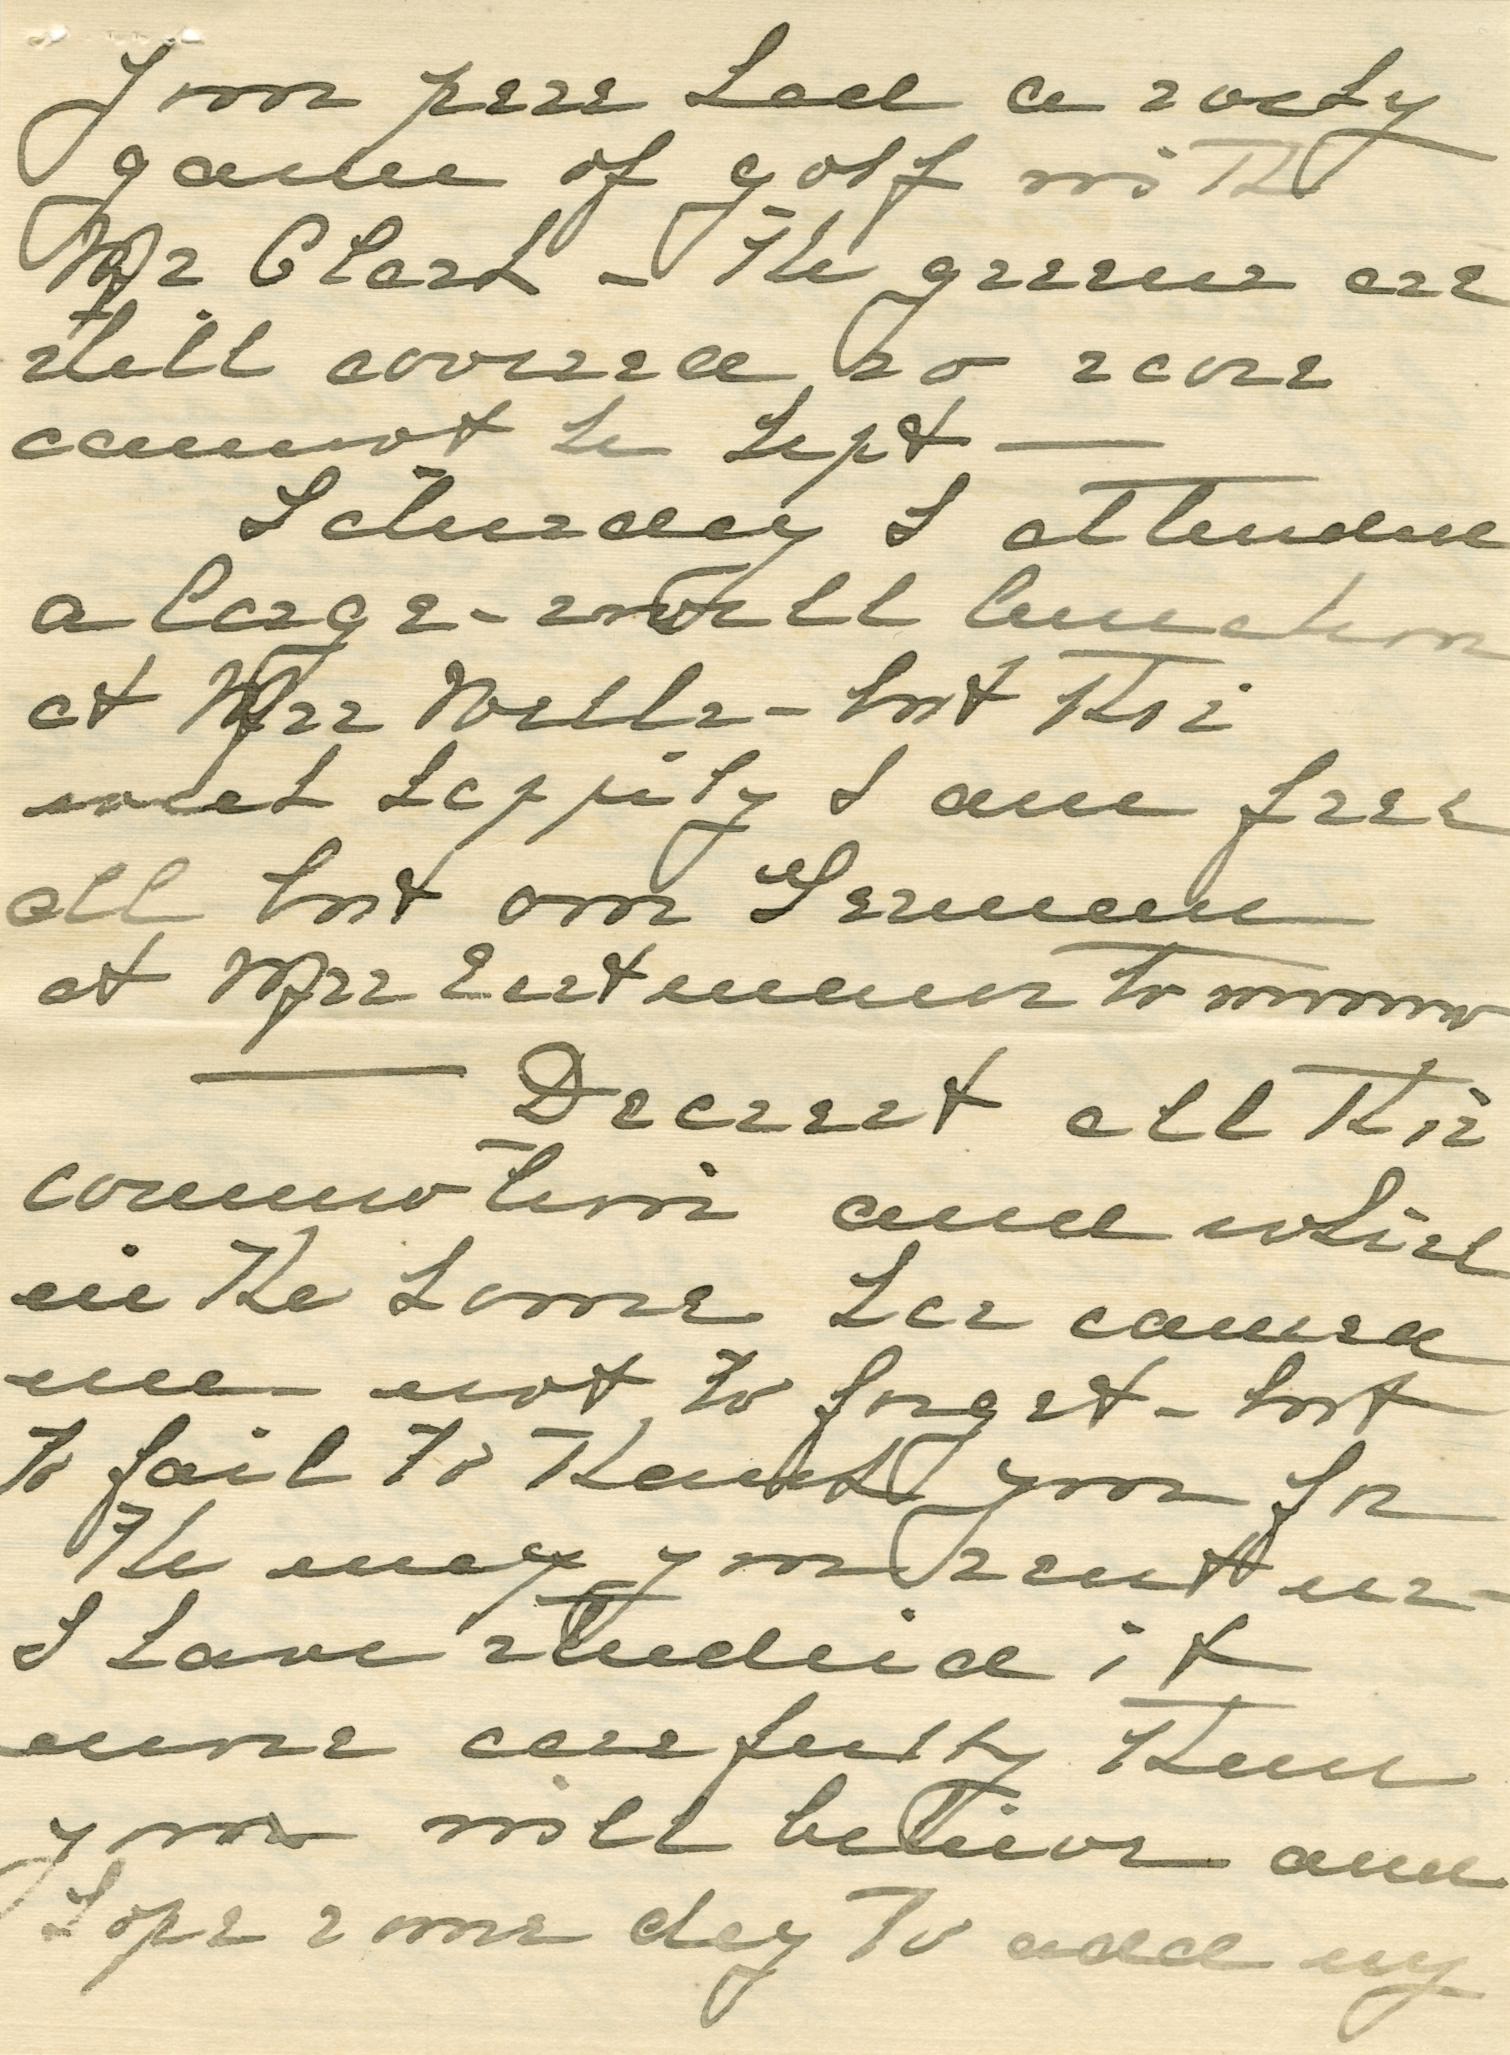 Your pere had a rocky
game of golf with
Mr Clark - The greens are
still covered so score
cannot be kept —
Saturday I attended
a large-small luncheon
at Mrs Wells - but this
week happily I am free
all but our German
at Mrs tomorrow
— Dearest all this
commotion and whirl
in the house has caused
me not to forget - but
to fail to thank you for
The map you sent us -
I have studied it
more carefully than
you will believe and
hope some day to add my